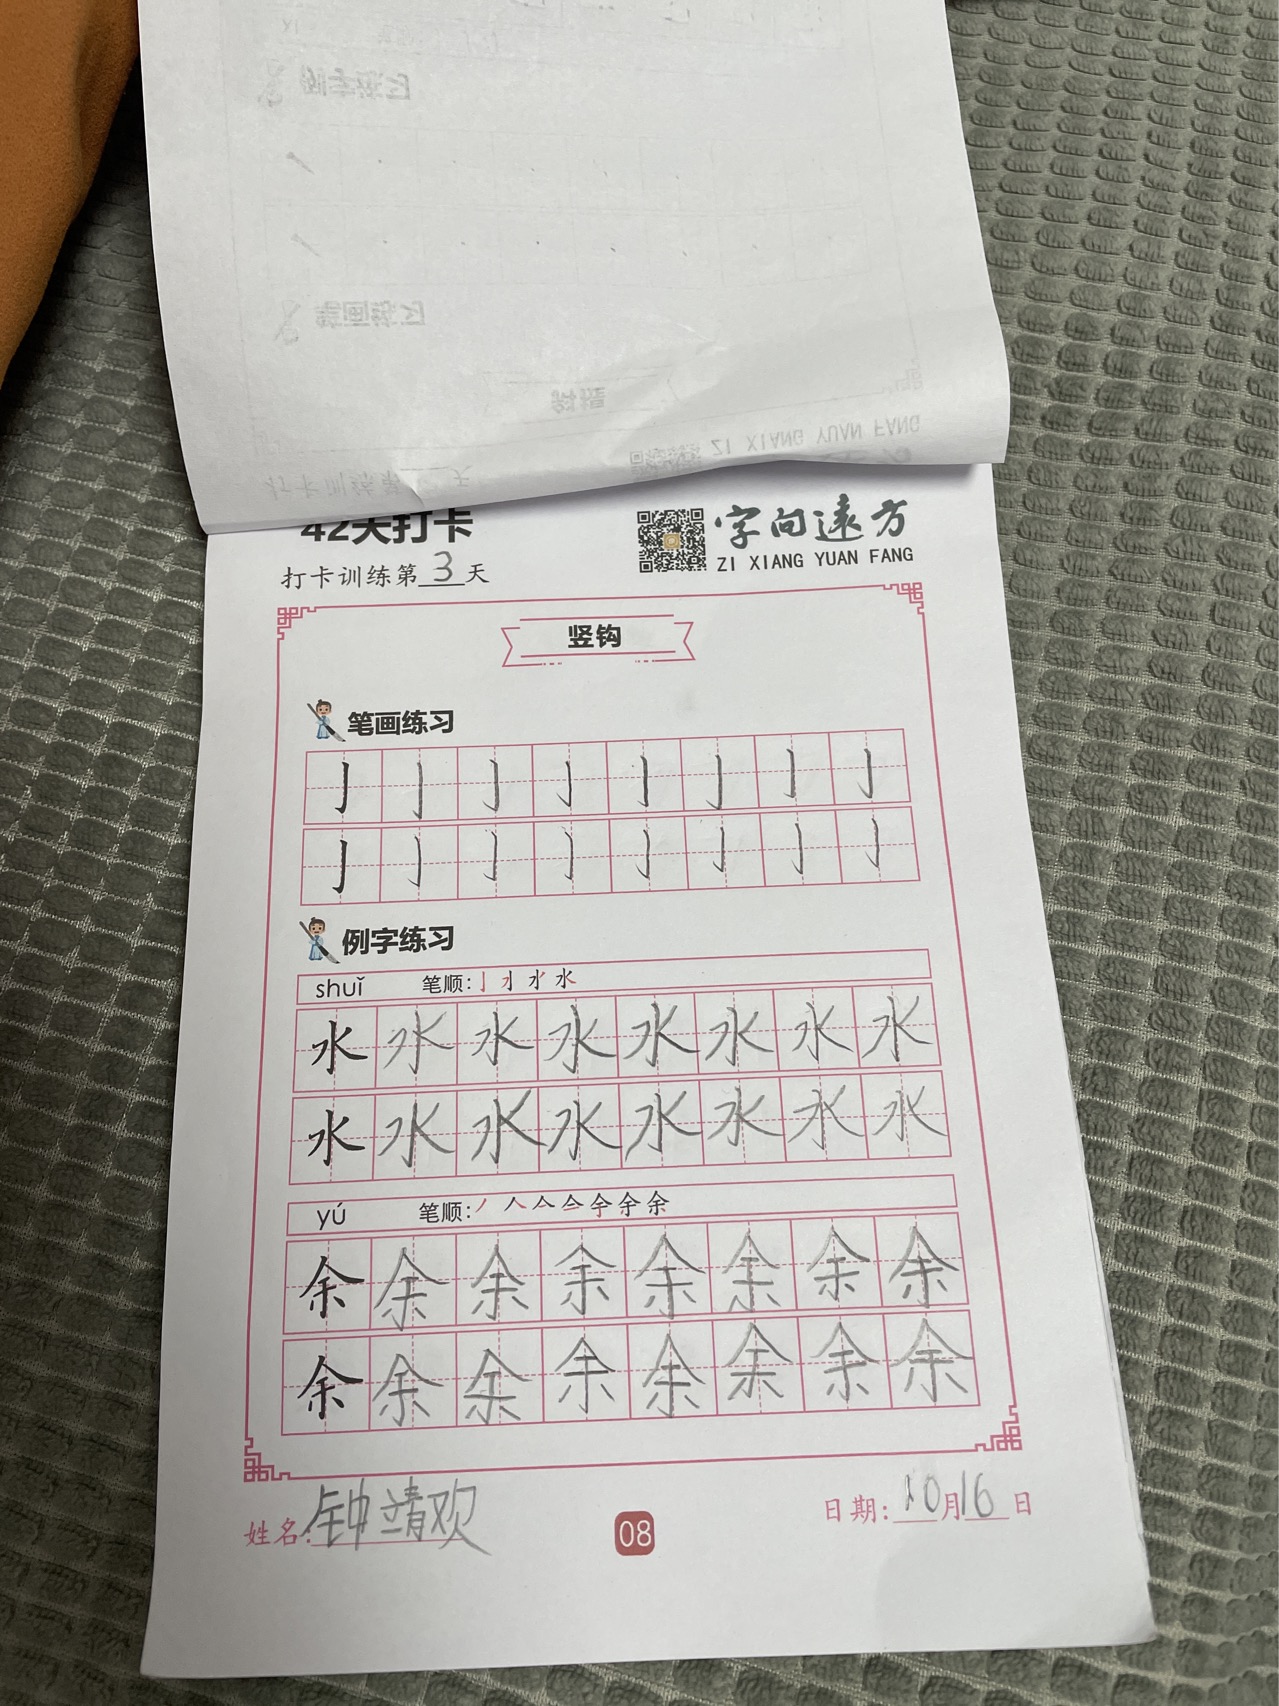 42天打卡
字向远方
打卡训练第3天
ZI XIANG YUAN FANG
竖钩
笔画练习
亅亅亅亅亅亅亅亅
亅亅亅亅亅亅亅亅
例字练习
shuǐ 笔顺:
水水水水水水水水
水水水水水水水水
yú 笔顺:
余余余余余余余余
余余余余余余余余
姓名:钟靖欢
08
日期:10月16日